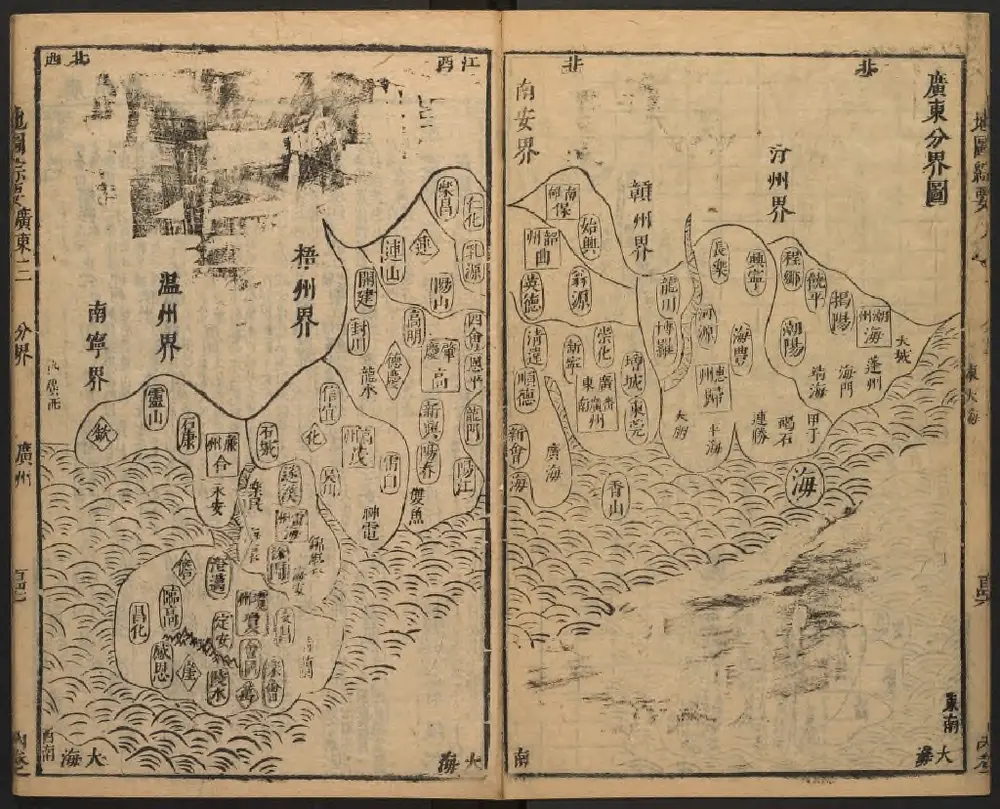 廣東分界圖
北
北
汀州界
贛州界
南安界
南
保
始興
韶州
曲
翁源
英德
長樂
興寧
程鄉
饒平
揭陽
潮州
海
大城
蓬州
海門
靖海
潮陽
龍川
河源
博羅
海豐
惠州
歸
甲子
碣石
平海
清遠
從化
增城
東莞
順德
廣東
廣州
南
新會
廣海
香山
海
東大海
東南
大海
南
江西
北西
樂昌
仁化
乳源
連
連山
陽山
開建
封川
梧州界
温州界
南寧界
四會
恩平
高明
肇慶
高
德慶
龍水
新興
陽春
龍門
陽江
信宜
化
高州
茂
電白
吳川
雙魚
神電
靈山
欽
石康
廉州
合
永安
石城
遂溪
樂民
雷州
海
錦囊
海安
儋
澄邁
臨高
昌化
瓊州
瓊
定安
文昌
會同
感恩
崖
陵水
萬
樂會
西南
大海
地圖綜要
廣東
分界
廣州